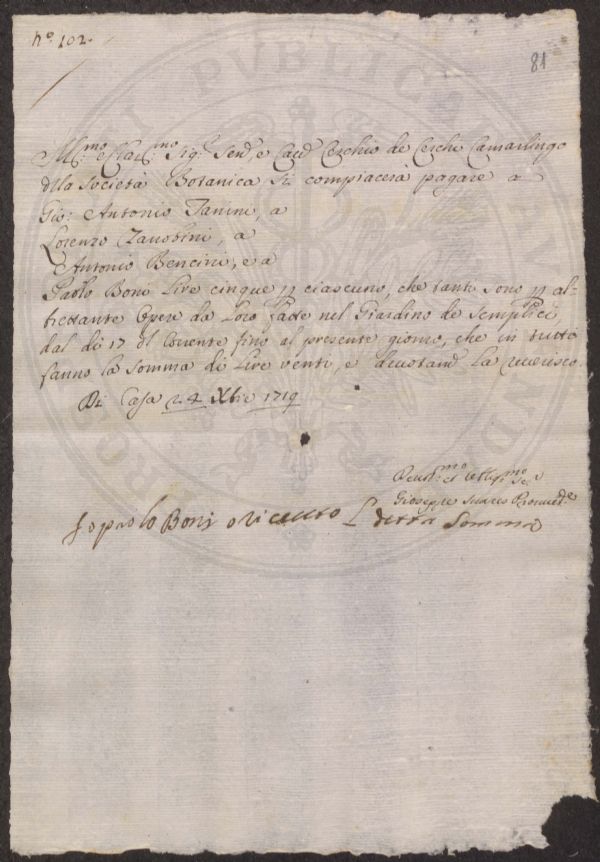 nº. 102.
81
Ill:mo e Clar:mo Sig:r Send:e e Cav:e Cerchio de Cerchi Camarlingo
della Società Botanica si compiacerà pagare a
Gio: Antonio Fanini, a
Lorenzo Zanobini, a
Antonio Bencini, e a
Paolo Boni Lire cinque p ciascuno, che tanti sono p al-
trettante Opere da Loro fatte nel Giardino de Semplici,
dal dì 17 del Corrente fino al presente giorno, che in tutto
fanno la somma di Lire venti, e la riverisco.
Di Casa 24 Xbre 1719
Giuseppe Suares Provved:e
Io paolo Boni o riceuto L detta Somma